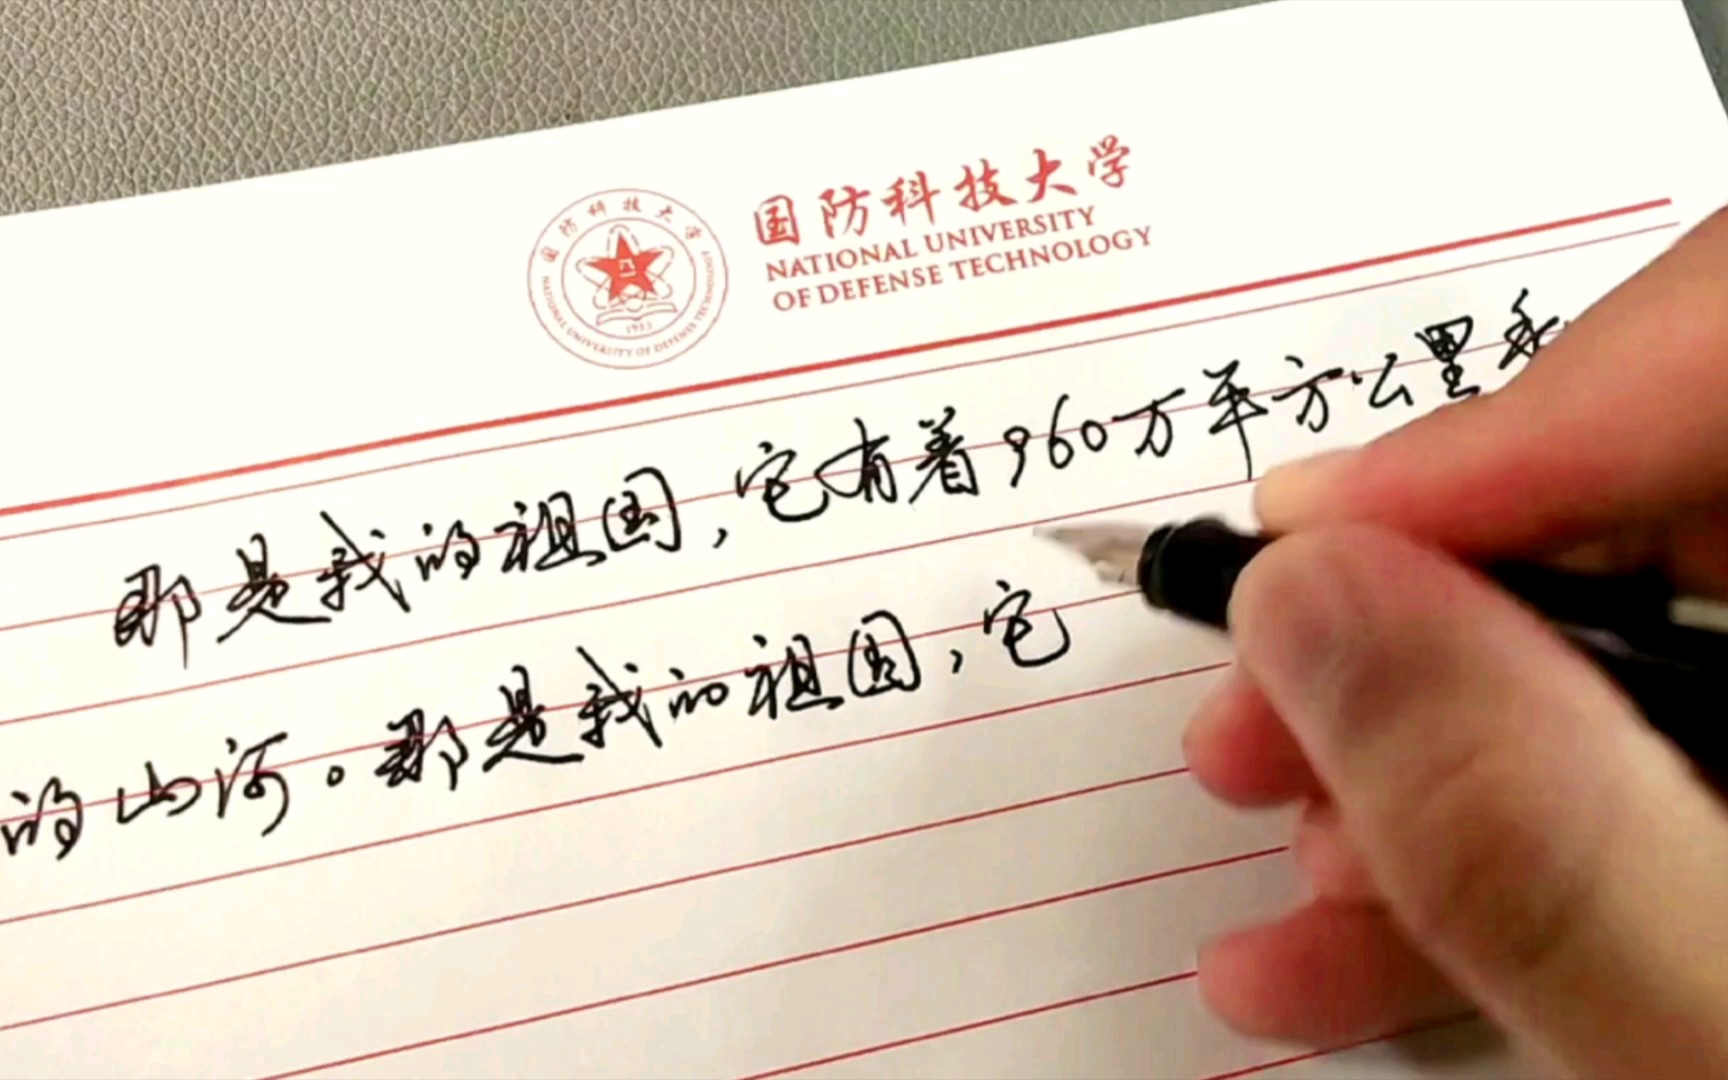 国防科技大学
NATIONAL UNIVERSITY
OF DEFENSE TECHNOLOGY
国防科技大学
NATIONAL UNIVERSITY OF DEFENSE TECHNOLOGY
1953
那是我的祖国,它有着960万平方公里
的山河。那是我的祖国,它